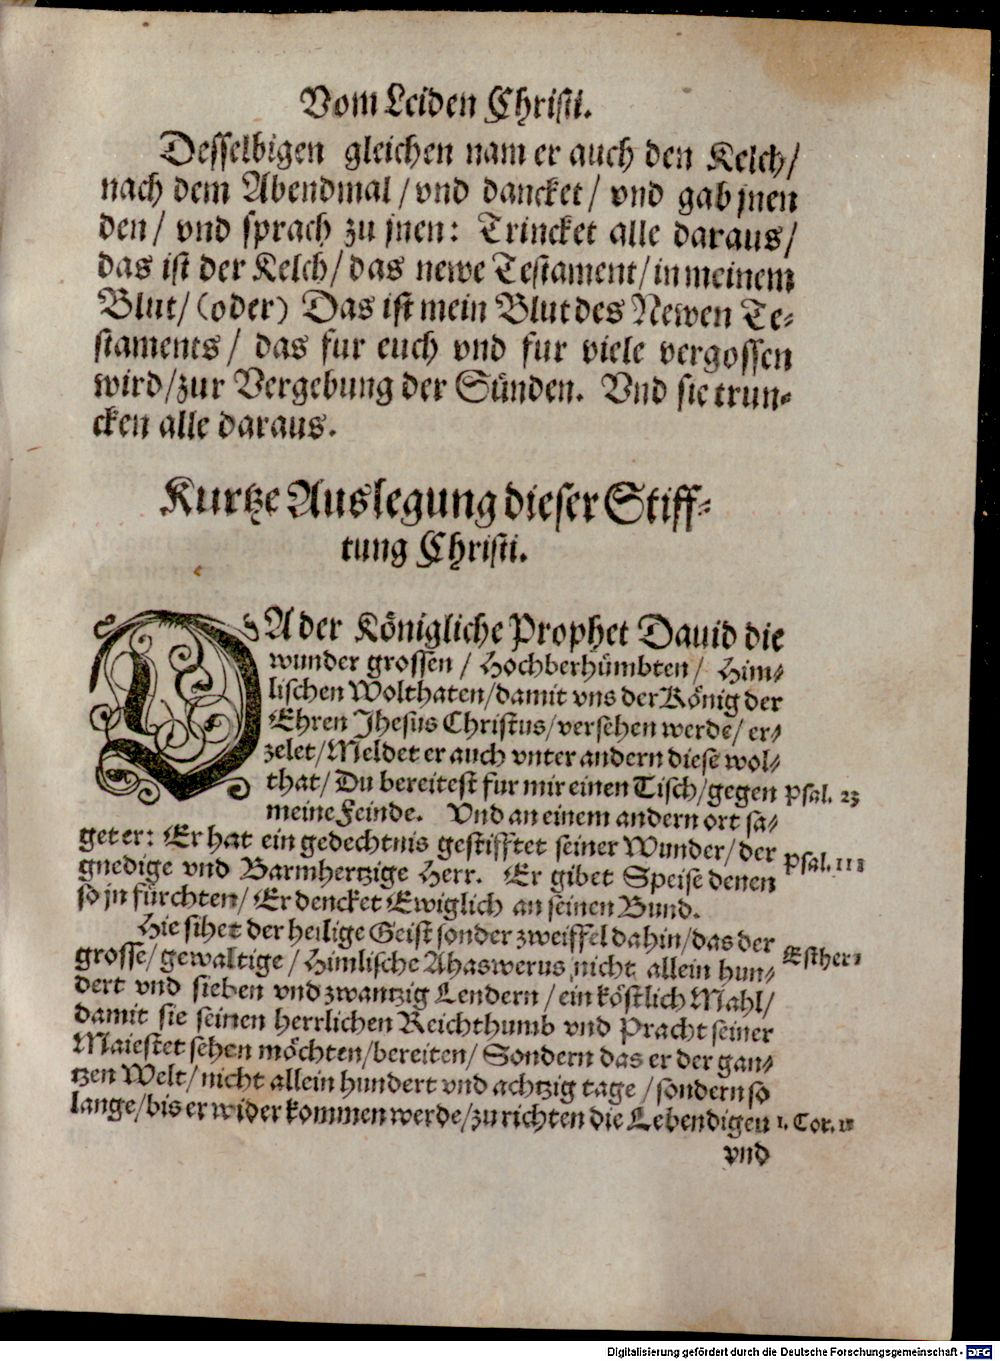 Vom Leiden Christi.
Desselbigen gleichen nam er auch den Kelch/
nach dem Abendmal/vnd dancket/ vnd gab jnen
den/ vnd sprach zu jnen: Trincket alle daraus/
das ist der Kelch/das newe Testament/in meinem
Blut/(oder) Das ist mein Blut des Newen Te-
staments/ das fur euch vnd fur viele vergossen
wird/zur Vergebung der Sünden. Vnd sie trun-
cken alle daraus.
Kurtze Auslegung dieser Stiff-
tung Christi.
DA der Königliche Prophet Dauid die
wunder grossen/ Hochberhümbten/ Him-
lischen Wolthaten/damit vns der König der
Ehren Jhesus Christus/versehen werde/ er-
zelet/Meldet er auch vnter andern diese wol-
that/ Du bereitest fur mir einen Tisch/gegen Psal. 23
meine Feinde. Vnd an einem andern ort sa-
get er: Er hat ein gedechtnis gestifftet seiner Wunder/der
gnedige vnd Barmhertzige Herr. Er gibet Speise denen Psal. 111
so jn fürchten/ Er dencket Ewiglich an seinen Bund.
Hie sihet der heilige Geist sonder zweiffel dahin/das der
grosse/gewaltige/Himlische Ahaswerus nicht allein hun- Esther 1
dert vnd sieben vnd zwantzig Lendern/ein köstlich Mahl/
damit sie seinen herrlichen Reichthumb vnd Pracht seiner
Maiestet sehen möchten/bereiten/ Sondern das er der gan-
tzen Welt/nicht allein hundert vnd achtzig tage/sondern so
lange/bis er wider kommen werde/zu richten die Lebendigen 1. Cor. 11
vnd
Digitalisierung gefördert durch die Deutsche Forschungsgemeinschaft - DFG